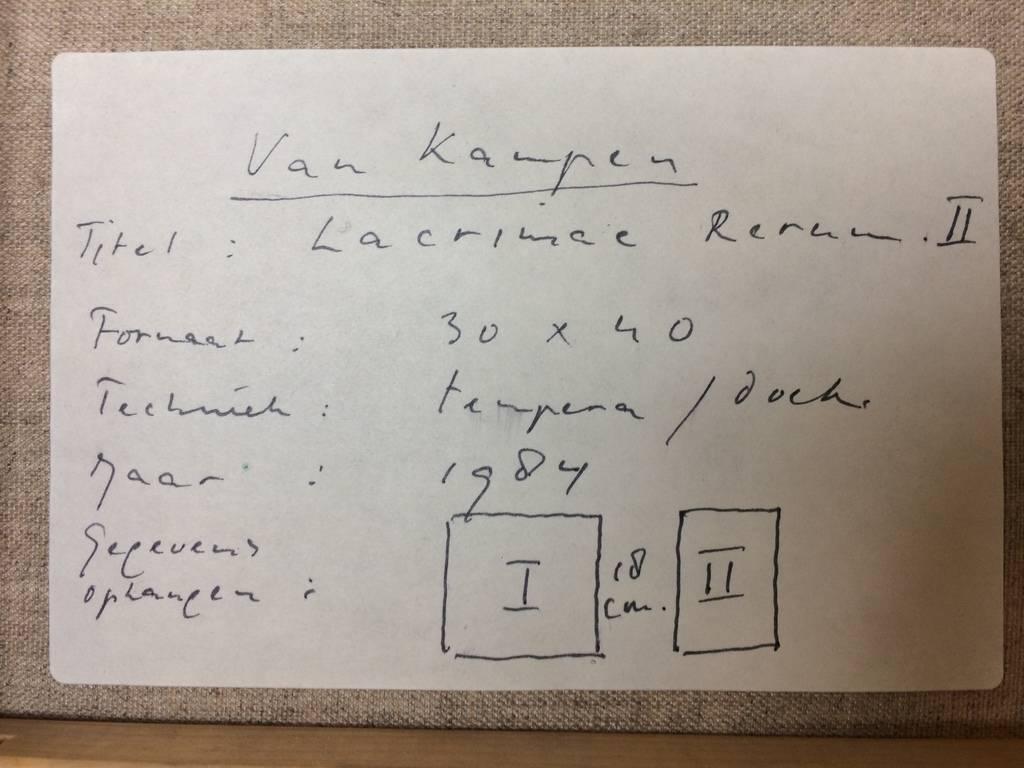 Van Kampen
Titel : Lacrimae Rerum. II
Formaat : 30 x 40
Techniek : tempera / doek.
Jaar : 1984
Gegevens
ophangen :
I 18 cm. II